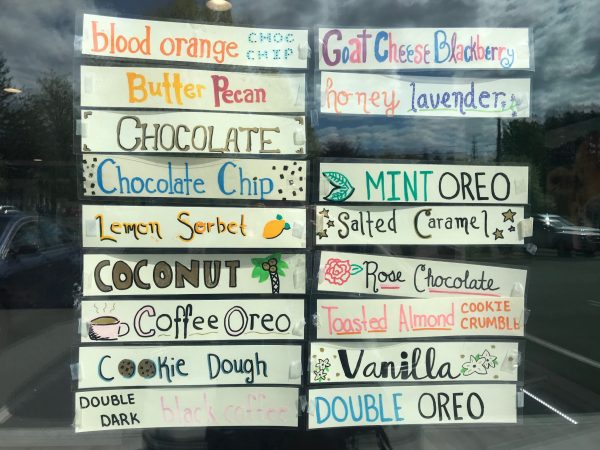 blood orange CHOC CHIP
Butter Pecan
CHOCOLATE
Chocolate Chip
Lemon Sorbet
COCONUT
Coffee Oreo
Cookie Dough
DOUBLE DARK black coffee
Goat Cheese Blackberry
honey lavender
MINT OREO
Salted Caramel
Rose Chocolate
Toasted Almond COOKIE CRUMBLE
Vanilla
DOUBLE OREO